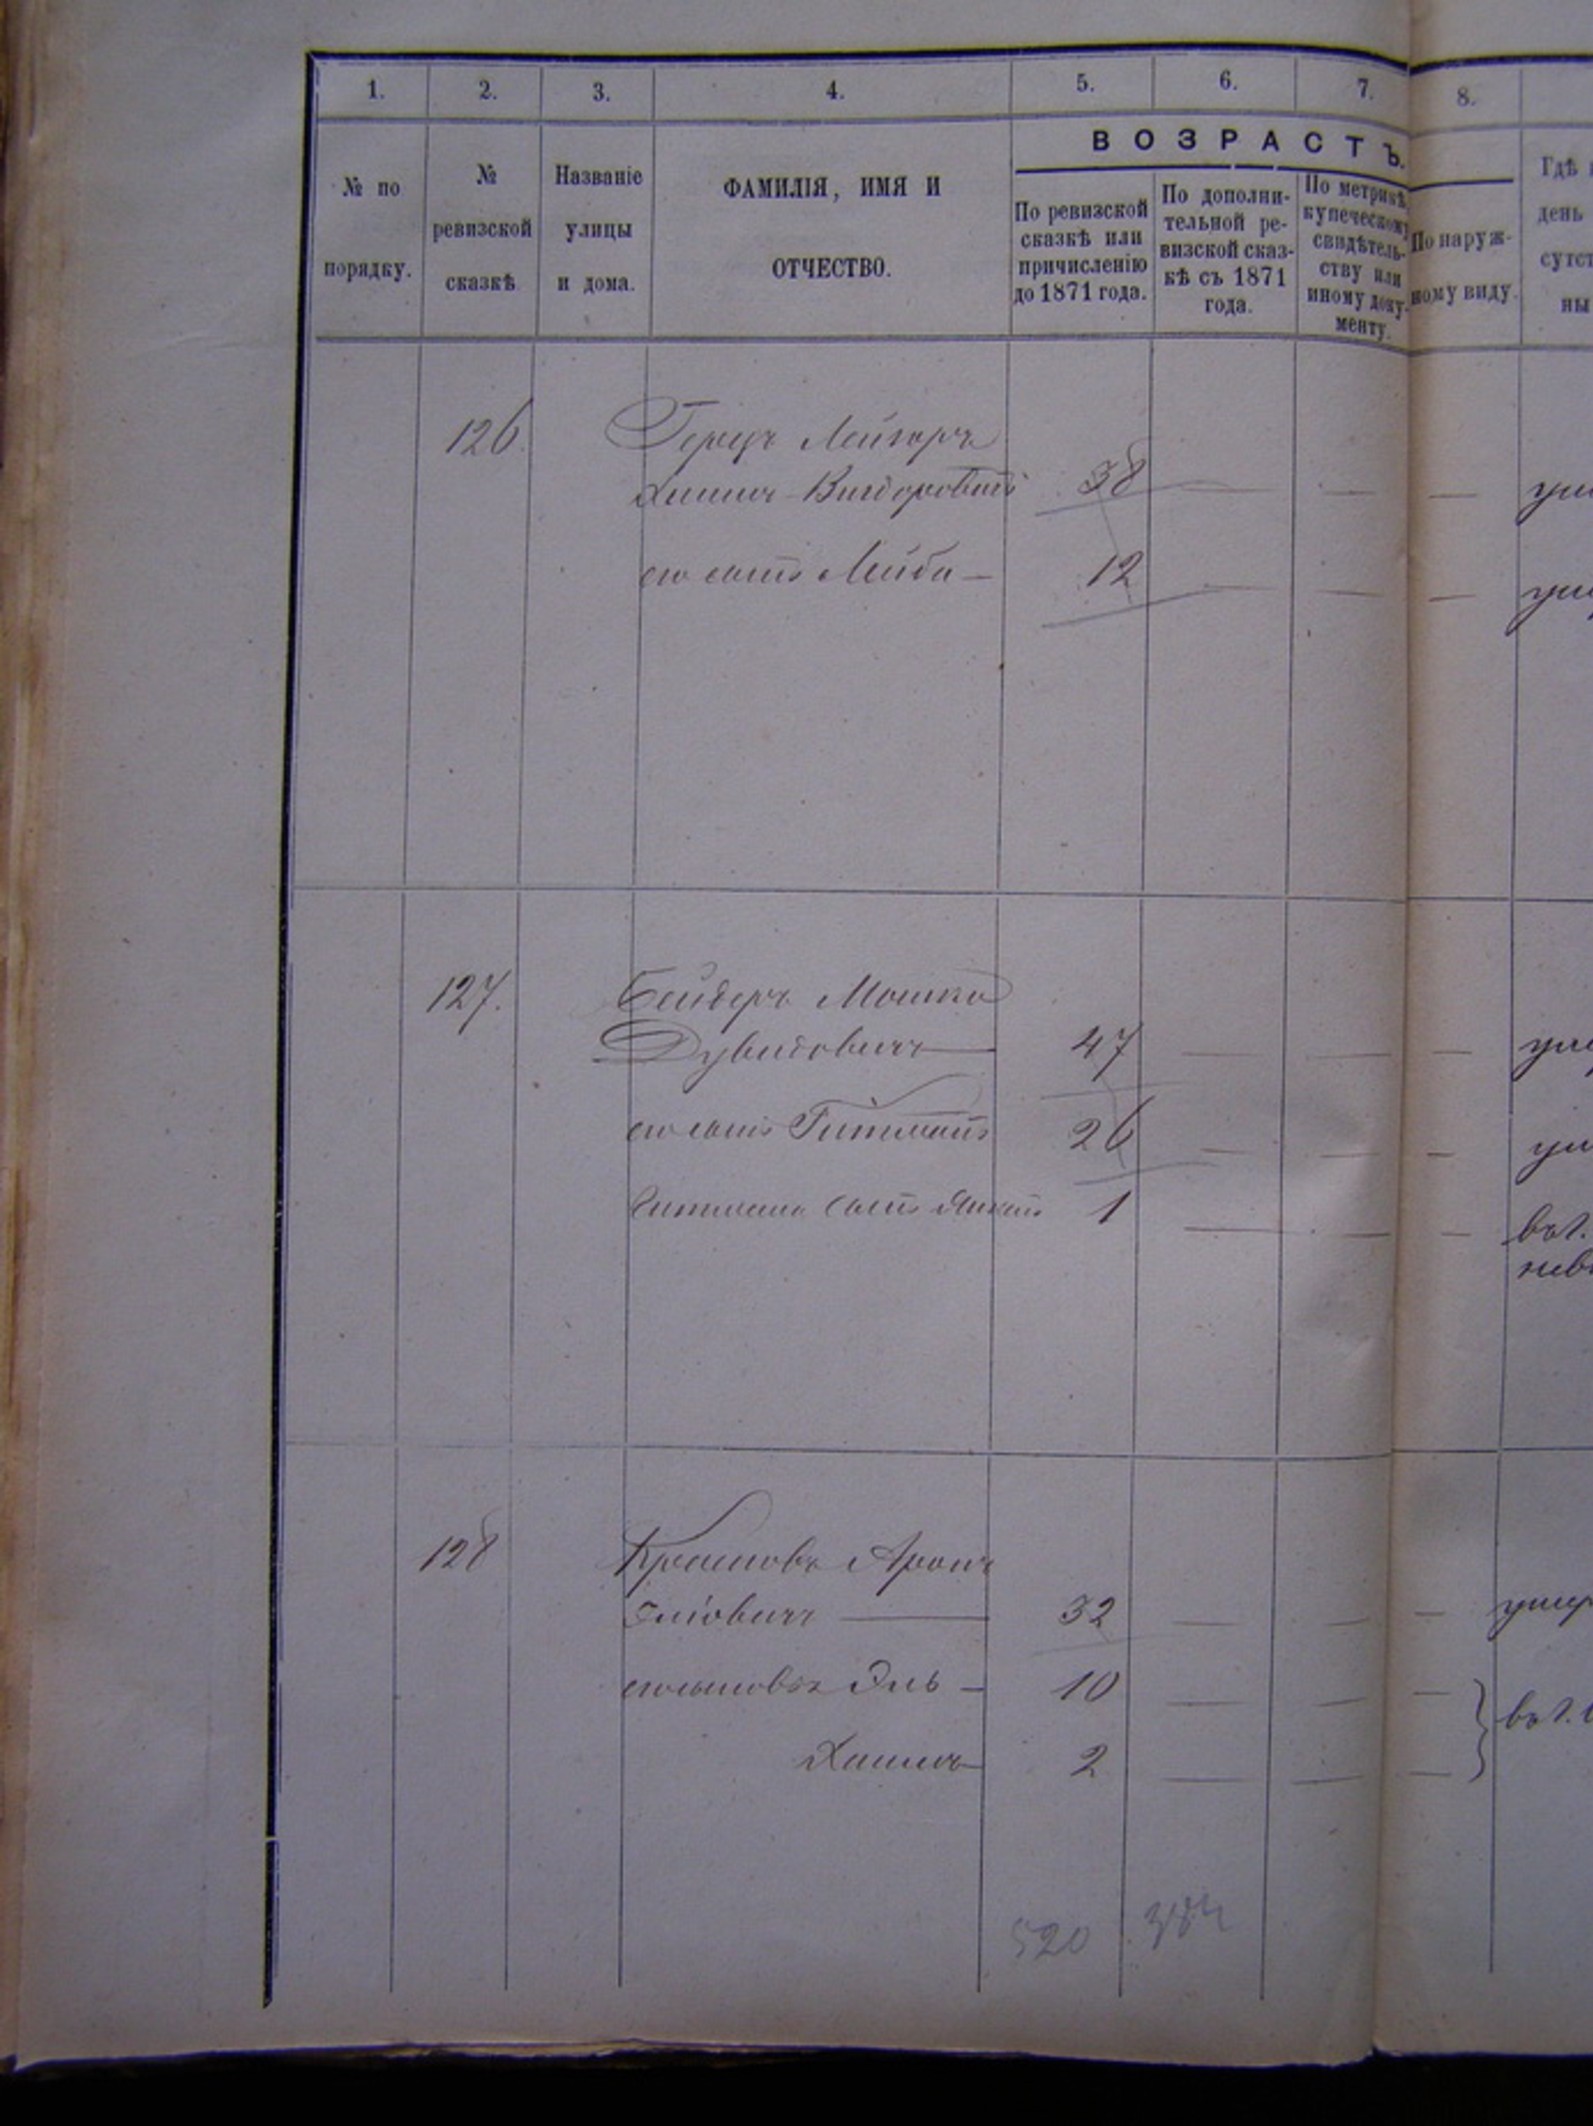 1. 2. 3. 4. 5. 6. 7. 8.
ВОЗРАСТЪ.
№ по порядку.
№ ревизской сказкѣ
Названіе улицы и дома.
ФАМИЛІЯ, ИМЯ И ОТЧЕСТВО.
По ревизской сказкѣ или причисленію до 1871 года.
По дополни-тельной ре-визской сказ-кѣ съ 1871 года.
По метрикѣ, купеческому свидѣтель-ству или иному доку-менту.
По наруж-ному виду.
Гдѣ
день
сутст
ны
126. Герцъ Лейзоръ
Хаимъ Вигдоровичъ 38 — — —
его сынъ Лейба — 12 — — —
127. Бейдеръ Мошко
Дувидовичъ — 47 — — —
его сынъ Гитманъ 26 — — —
Гитмана сынъ Янкель 1 — — —
128 Аронъ
32 — — — умер
его сыновья Эль — 10 — — —
Хаимъ — 2 — — —
520 384